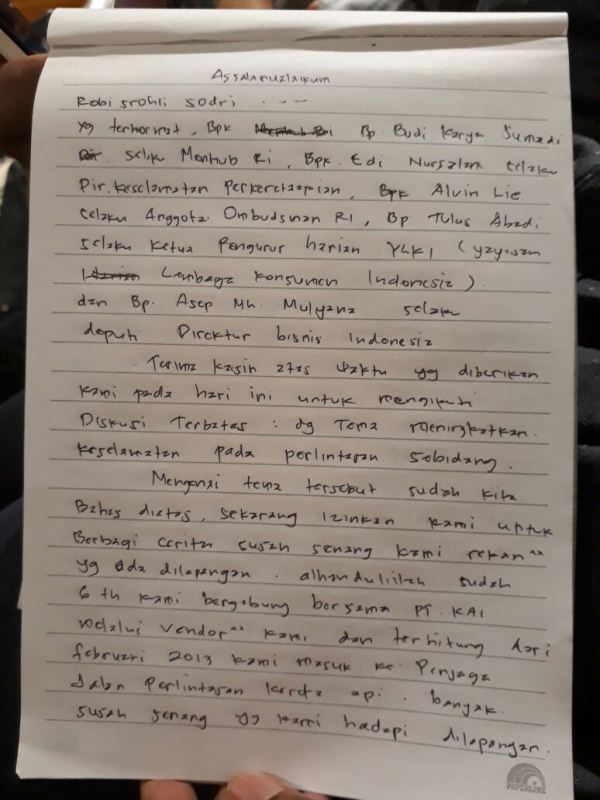 Assalamualaikum
Robi srohli sodri . - -
yg terhormat, Bpk Bp. Budi Karya Sumadi
selaku Menhub Ri, Bpk. Edi Nursalam selaku
Dir. Keselamatan Perkeretaapian, Bpk Alvin Lie
selaku Anggota Ombudsman RI, Bp Tulus Abadi
selaku Ketua Pengurus harian YLKI (yayasan
Lembaga Konsumen Indonesia).
dan Bp. Asep Mh. Mulyana selaku
deputi Direktur bisnis Indonesia
Terima kasih atas waktu yg diberikan
kami pada hari ini untuk mengikuti
Diskusi Terbatas : dg Tema meningkatkan
keselamatan pada perlintasan sebidang.
Mengenai tema tersebut sudah kita
Bahas diatas, sekarang izinkan kami untuk
Berbagi cerita susah senang kami rekan"
yg ada dilapangan. alhamdulillah sudah
6 th kami bergabung bersama PT. KAI
melalui vendor" kami, dan terhitung dari
februari 2013 kami masuk ke Penjaga
Jalan Perlintasan kereta api. banyak
susah senang yg kami hadapi dilapangan.
PAPERLINE